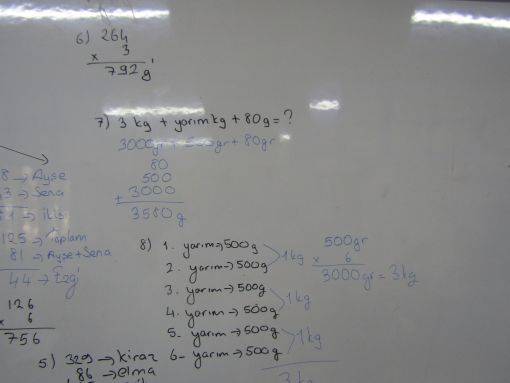 6) 264
x 3
792 g
7) 3 kg + yarım kg + 80 g = ?
3000gr + 500gr + 80gr
80
500
+ 3000
3580 g
8 → Ayşe
3 → Sena
→ ikisi
125 → Toplam
81 → Ayşe + Sena
44 → Ezgi
126
x 6
756
8) 1. yarım → 500g
2. yarım → 500g
1kg
3. yarım → 500g
4. yarım → 500g
1kg
5- yarım → 500g
6- yarım → 500g
1kg
3kg
500gr
x 6
3000gr = 3kg
5) 329 → kiraz
86 → elma